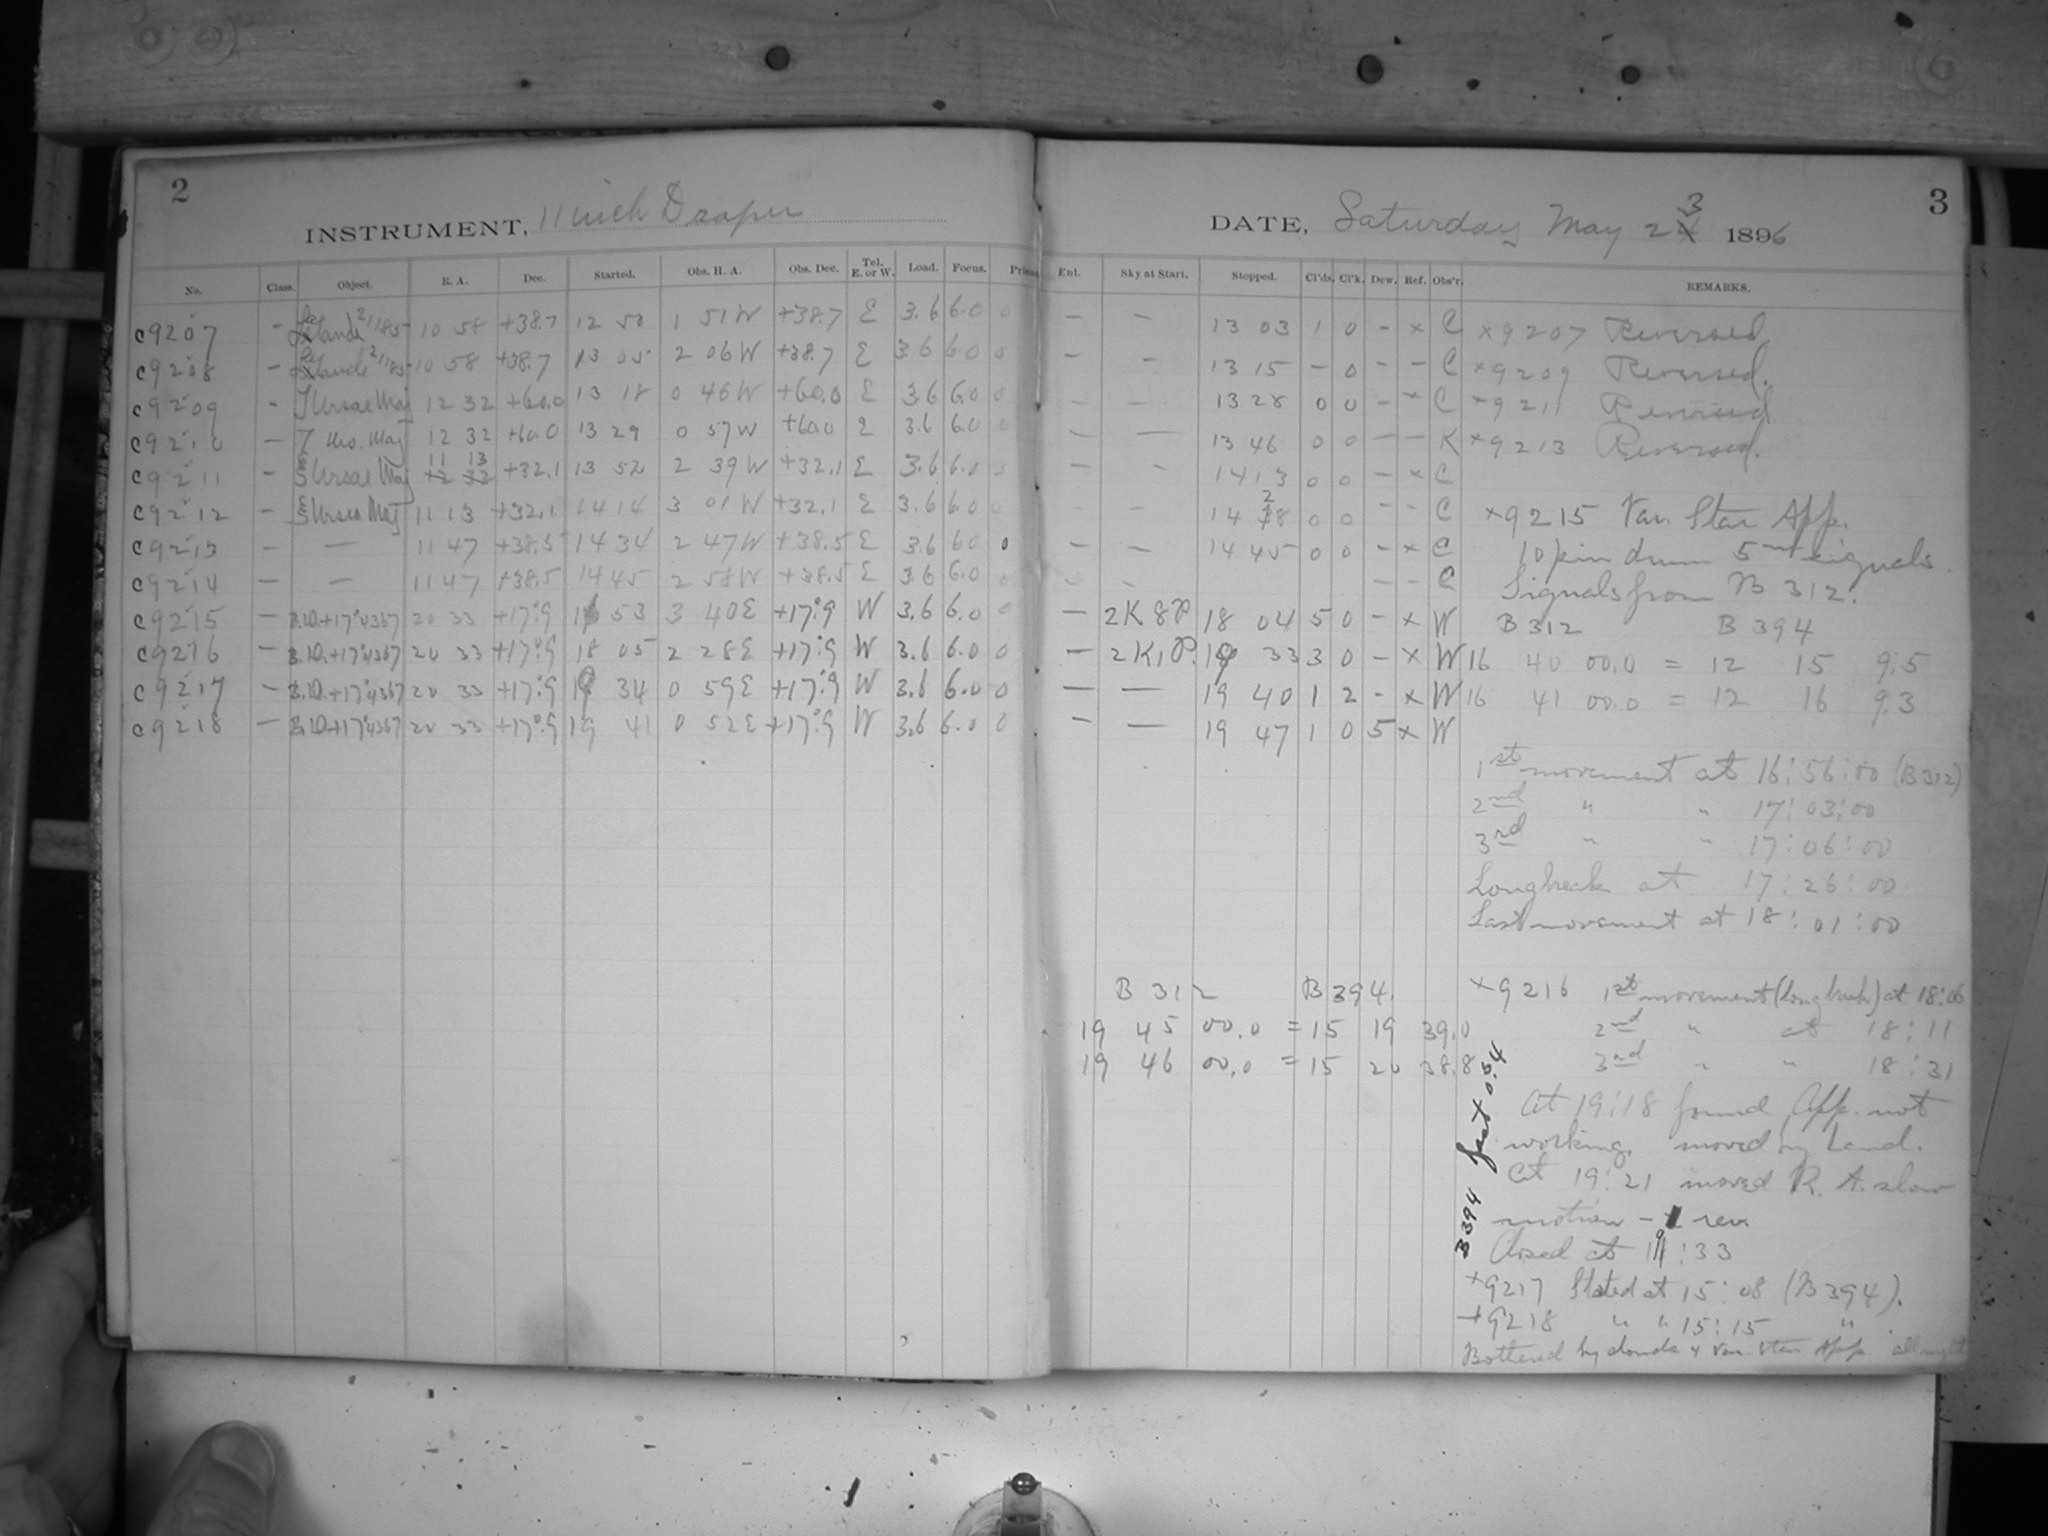 2
INSTRUMENT, 11 inch Draper
No. Class. Object. R. A. Dec. Started. Obs. H. A. Obs. Dec. Tel. E. or W. Load. Focus.
c9207 — 21185 10 58 +38.7 12 50 1 51 W +38.7 E 3.6 6.0 0
c9208 — 21185 10 58 +38.7 13 05 2 06 W +38.7 E 3.6 6.0 0
c9209 — Ursae Maj 12 32 +60.0 13 18 0 46 W +60.0 E 3.6 6.0 0
c9210 — 7 Urs. Maj 12 32 +60.0 13 29 0 57 W +60.0 E 3.6 6.0 0
c9211 — ξ Ursae Maj 11 13 +32.1 13 52 2 39 W +32.1 E 3.6 6.0 0
c9212 — ξ Ursae Maj 11 13 +32.1 14 14 3 01 W +32.1 E 3.6 6.0 0
c9213 — — 11 47 +38.5 14 34 2 47 W +38.5 E 3.6 6.0 0
c9214 — — 11 47 +38.5 14 45 2 58 W +38.5 E 3.6 6.0 0
c9215 — B.D.+17°4367 20 33 +17°.9 16 53 3 40 E +17°.9 W 3.6 6.0 0
c9216 — B.D.+17°4367 20 33 +17°.9 18 05 2 28 E +17°.9 W 3.6 6.0 0
c9217 — B.D.+17°4367 20 33 +17°.9 19 34 0 59 E +17°.9 W 3.6 6.0 0
c9218 — B.D.+17°4367 20 33 +17°.9 19 41 0 52 E +17°.9 W 3.6 6.0 0
3
DATE, Saturday May 23 1896
Enl. Sky at Start. Stopped. Cl'ds. Cl'k. Dew. Ref. Obs'r. REMARKS.
— — 13 03 1 0 - x C x9207 Reversed
— — 13 15 - 0 - - C x9209 Reversed.
— — 13 28 0 0 - x C x9211 Reversed
— — 13 46 0 0 - - K x9213 Reversed.
— — 14 13 0 0 - x C
— — 14 28 0 0 - - C x9215 Var. Star App.
— — 14 45 0 0 - x C 10 pin drum 5 mt signals.
— — - - C Signals from B 312.
— 2K8P 18 04 5 0 - x W B 312 B 394
— 2K,P. 19 33 3 0 - x W 16 40 00.0 = 12 15 9.5
— — 19 40 1 2 - x W 16 41 00.0 = 12 16 9.3
— — 19 47 1 0 5 x W
1st movement at 16:56:00 (B312)
2nd " " 17:03:00
3rd " " 17:06:00
Longbreak at 17:26:00
Last movement at 18:01:00
B 312 B 394.
19 45 00.0 = 15 19 39.0
19 46 00.0 = 15 20 38.8
x9216 1st movement (long break) at 18:06
2nd " at 18:11
3rd " " 18:31
At 19:18 found App. not
working. moved by hand.
At 19:21 moved R. A. slow
motion - 1 rev.
Closed at 19:33
x9217 Stated at 15:08 (B394).
x9218 " " 15:15 "
Bothered by clouds & Var. Star App. all night
B394 fast x 0.54